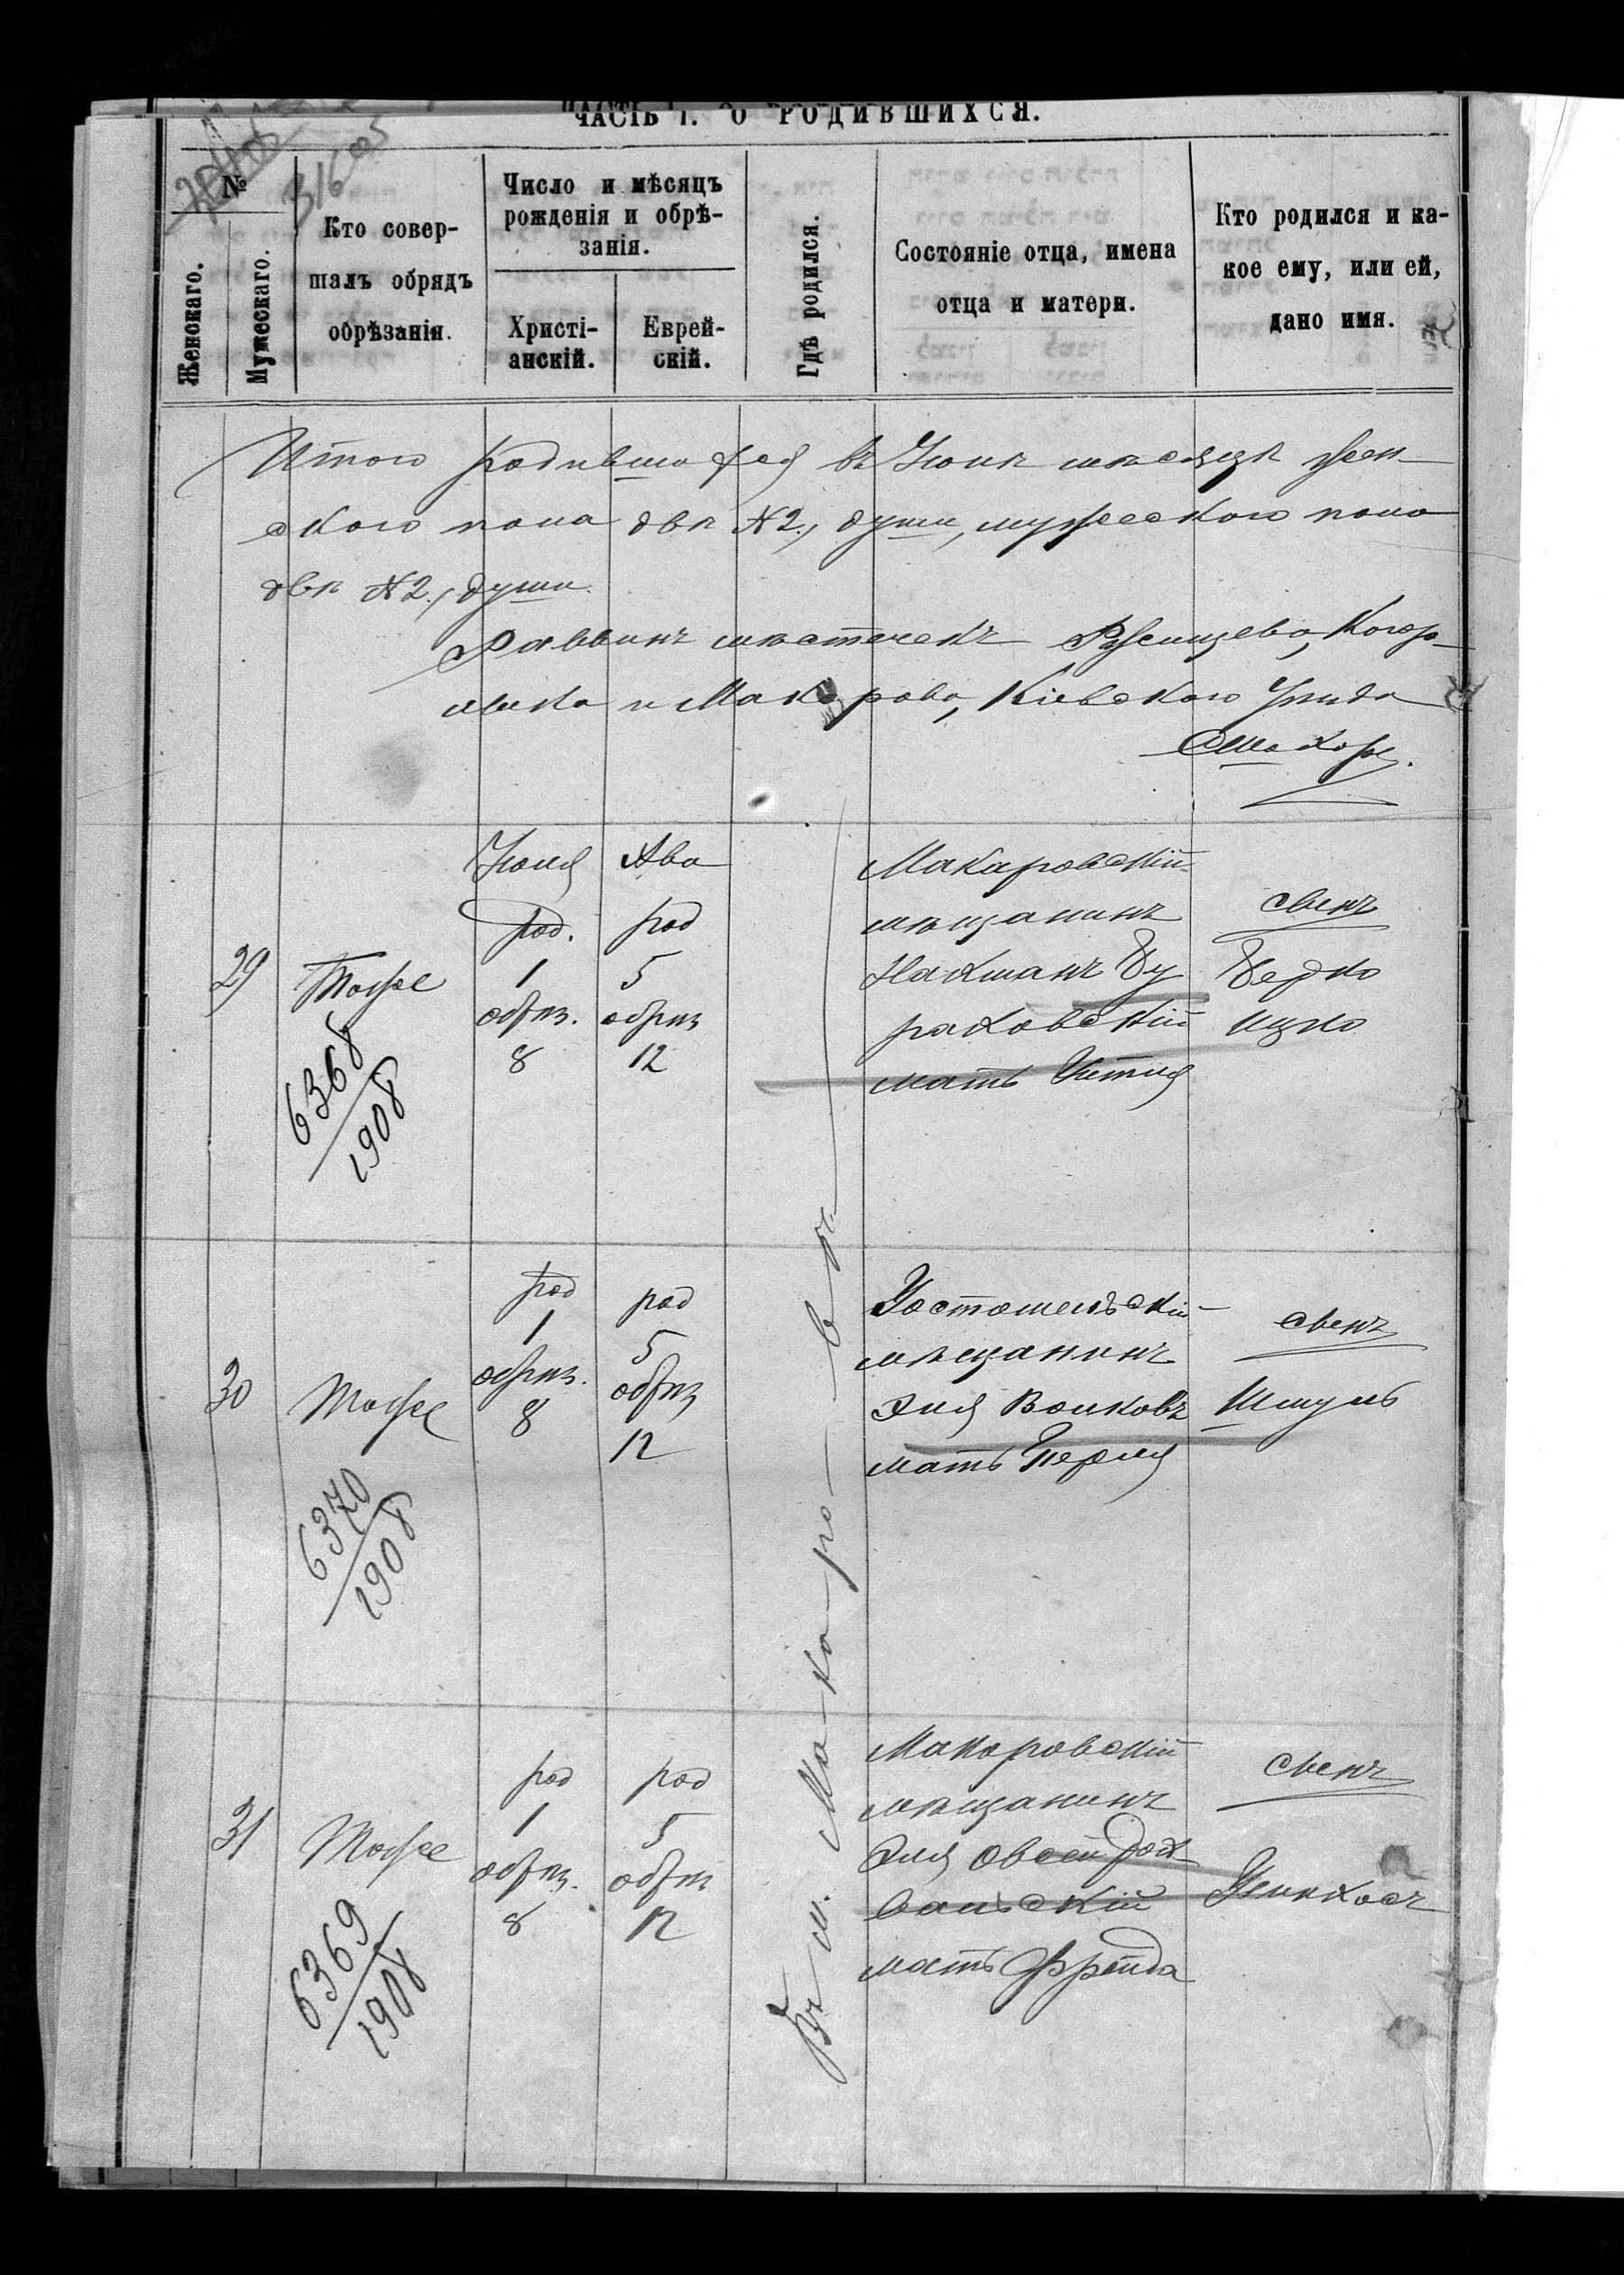 ЧАСТЬ I. О РОДИВШИХСЯ.
№
316
Женскаго.
Мужескаго.
Кто совер-
шалъ обрядъ
обрѣзанія.
Число и мѣсяцъ
рожденія и обрѣ-
занія.
Христі-
анскій.
Еврей-
скій.
Гдѣ родился.
Состояніе отца, имена
отца и матери.
Кто родился и ка-
кое ему, или ей,
дано имя.
Итого родившихся въ Іюнѣ мѣсяцѣ жен-
ского пола двѣ №2, души, мужеского пола
двѣ №2, души.
Раввинъ мѣстечекъ Ржищева, Когар-
лика и Макарова, Кіевского Уѣзда
29
Тоже
6368
1908
Іюля
род.
1
обрѣз.
8
Ава
род
5
обрѣз
12
Макаровскій
мѣщанинъ
Нахманъ Бу
раковскій
мать
сынъ
Берко
Ицко
30
Тоже
6370
1908
род
1
обрѣз.
8
род
5
обрѣз
12
Гостомельскій
мѣщанинъ
Эля Волковъ
мать Перля
сынъ
Шмуль
31
Тоже
6369
1908
род
1
обрѣз.
8
род
5
обрѣз
12
Макаровскій
мѣщанинъ
Эля Овсей
вальскій
мать Фрейда
сынъ
Пинхосъ
Въ м. Макаровѣ